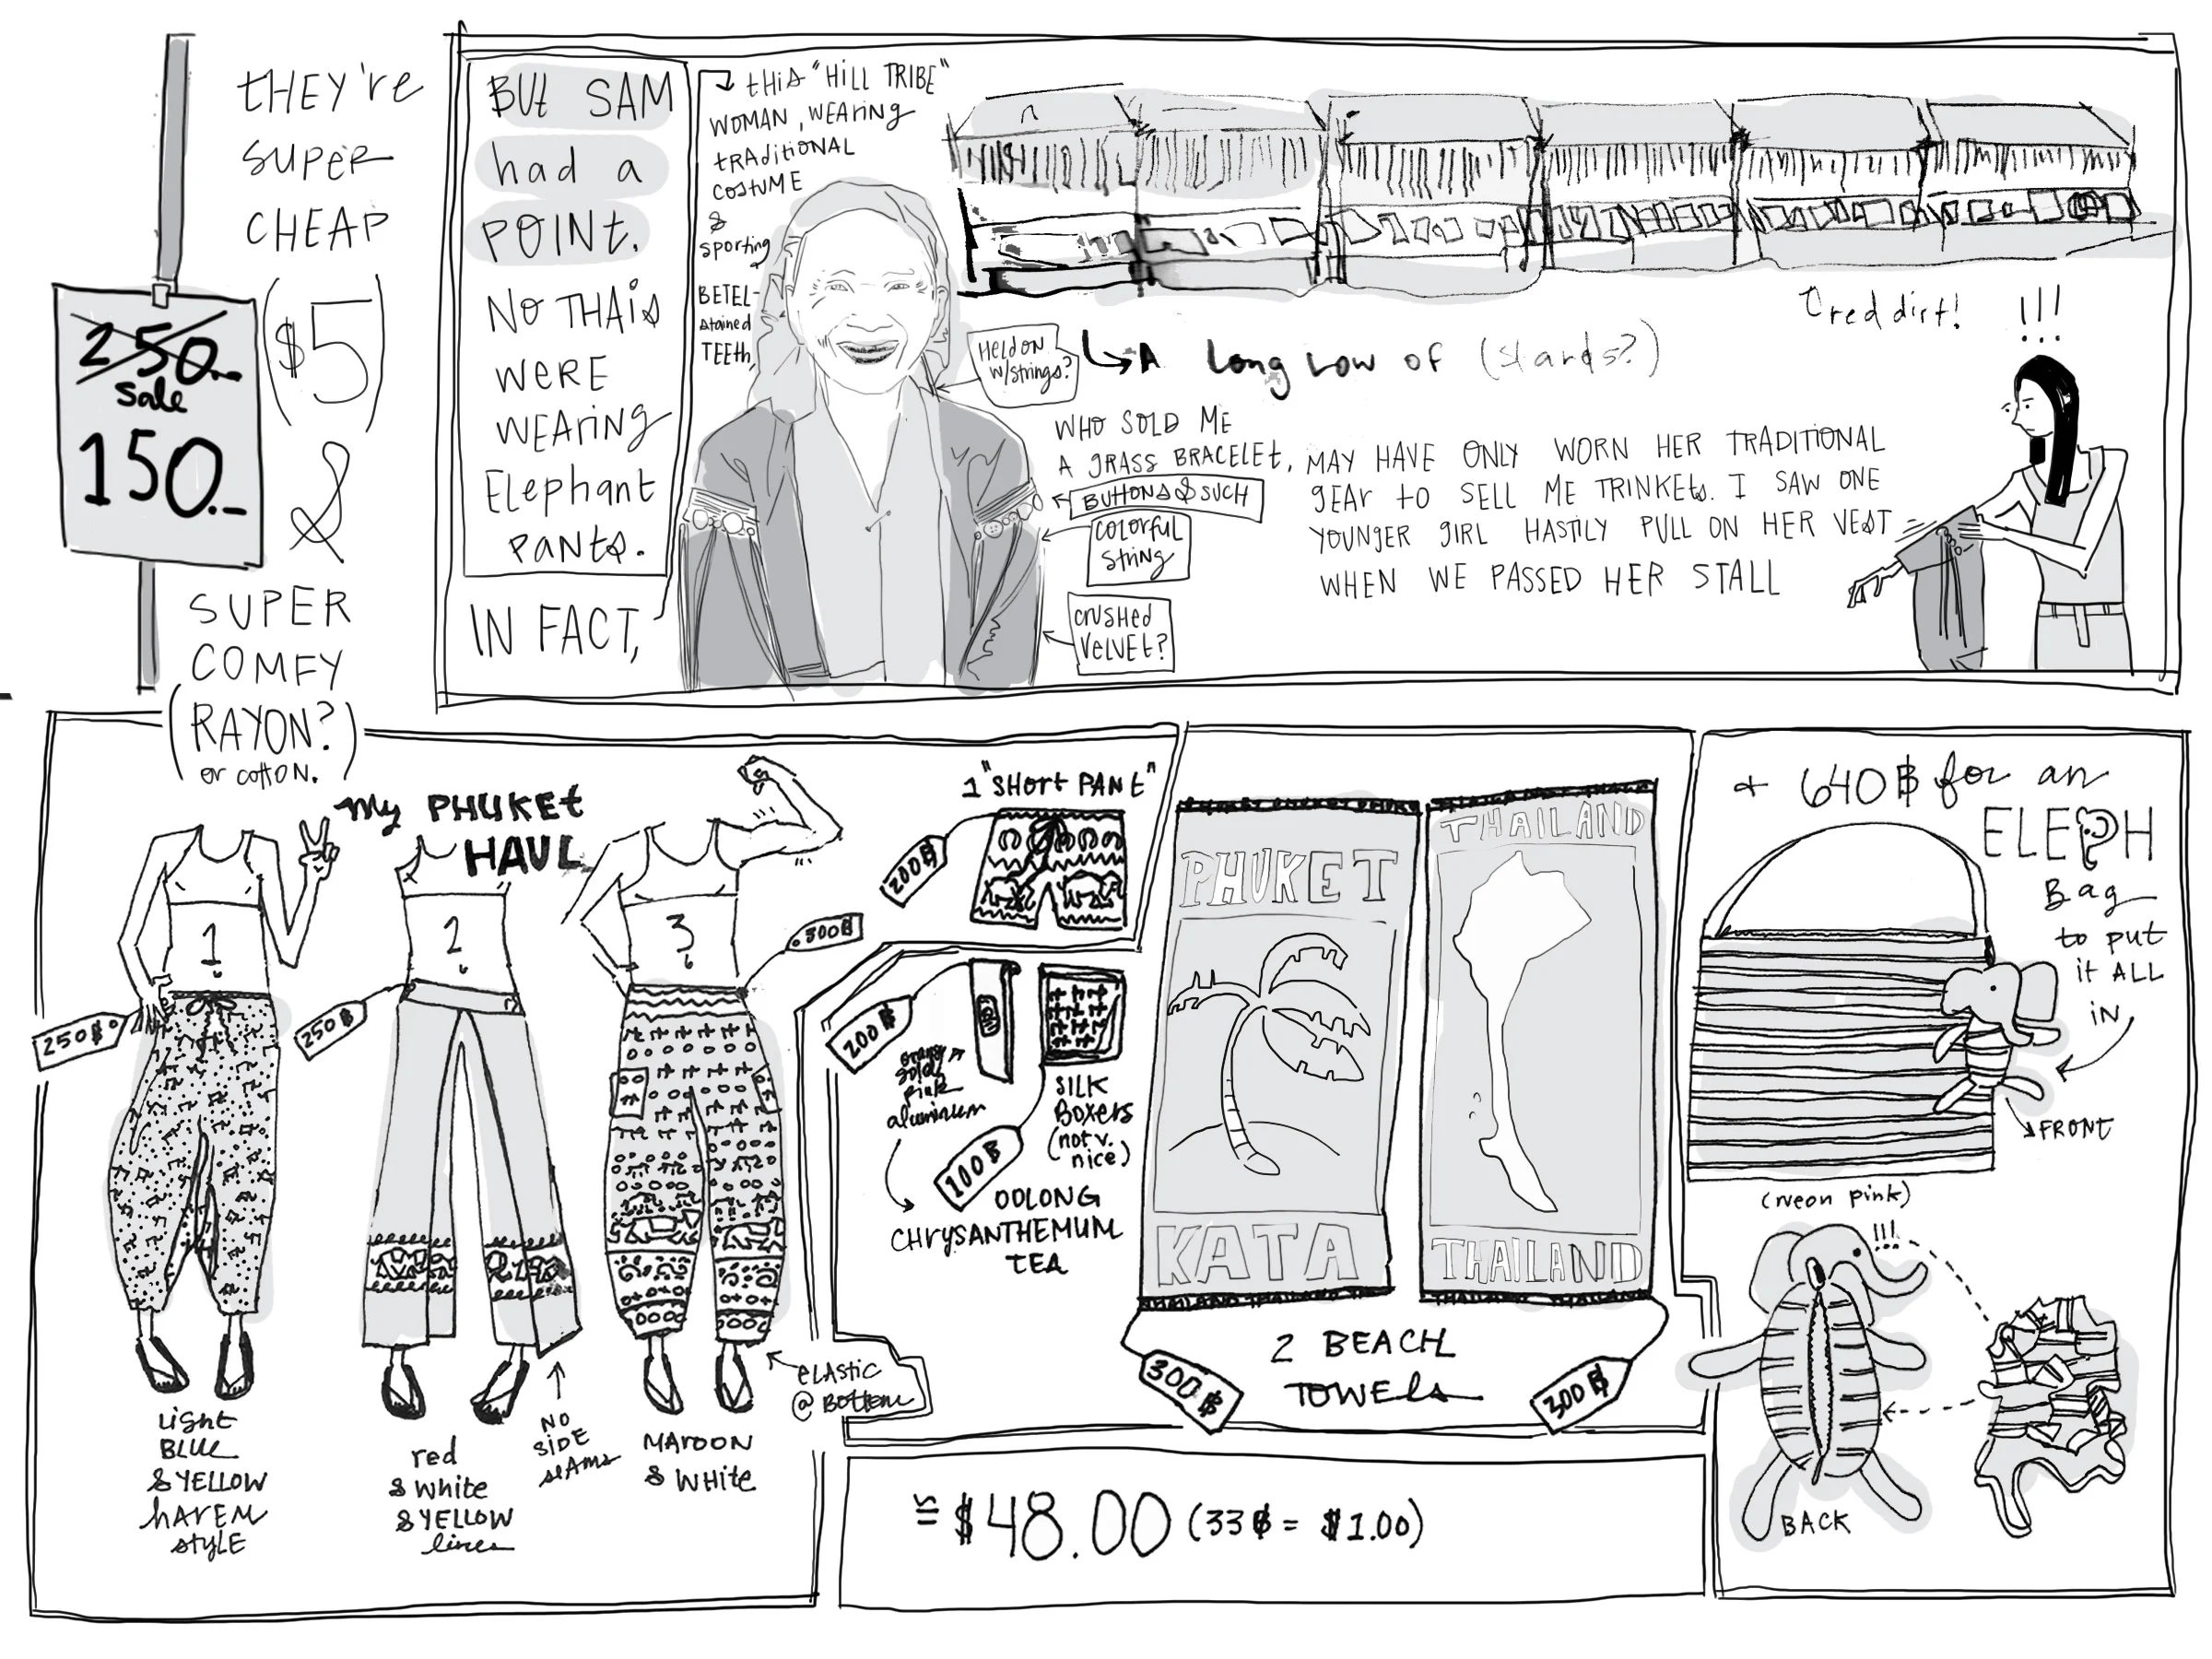 THEY're
SUPER
CHEAP
($5)
&
SUPER
COMFY
(RAYON?
or cotton.)
250.-
sale
150.-
BUt SAM
had a
POINt.
No THAis
were
WEArinG
Elephant
PANts.
IN FACT,
this "HILL TRIBE"
WOMAN, WEArinG
trAditiONAL
costuME
&
sporting
BETEL-
stained
TEEth,
Held on
w/strings?
A Long Low of (stands?)
red dirt!
!!!
WHO SOLD ME
A grASS BRACELEt,
BUttONS & SUCH
COlOrfUl
StrinG
crusHed
VelVEt?
MAY HAVE ONLY WORN HER TRADITIONAL
GEAr tO SELL ME TRINKEts. I SAW ONE
YOUNGER GIRL HASTILY PULL ON HER VEST
WHEN WE PASSED HER STALL
My PHUKEt
HAUL
1
2
3
250฿
250฿
300฿
Light
BLUE
& YELLOW
harem
style
red
& white
& YELLOW
lines
NO
SIDE
seAms
MAROON
& WHite
elAStic
@ Bottom
1 "SHOrt PANt"
200฿
200฿
orange
gold
pink
aluminum
SILK
Boxers
(not v.
nice)
100฿
OOLONG
CHrYSANTHEMUM
TEA
PHUKET
KATA
THAILAND
THAILAND
2 BEACH
TOWELs
300฿
300฿
≅ $48.00 (33฿ = $1.00)
+ 640฿ for an
ELEPH
Bag
to put
it ALL
iN
FRONT
(neon pink)
!!!
BACK